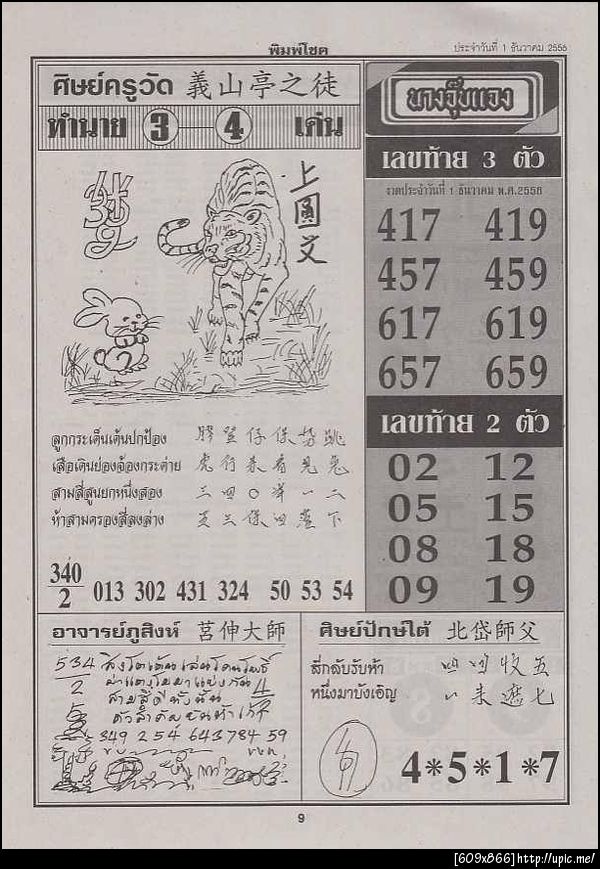 พิมพ์โชค
ประจำวันที่ 1 ธันวาคม 2556
ศิษย์ครูวัด 義山亭之徒
ทำนาย 3 — 4 เด่น
上
圓
文
ลูกกระเด็นเต้นปกป้อง
เสือเดินย่องจ้องกระต่าย 虎行
สามสี่สูนยกหนึ่งสอง 三四〇
ห้าสามครองสี่ลงล่าง 下
340
2
013 302 431 324 50 53 54
นางจุ๊บแจง
เลขท้าย 3 ตัว
งวดประจำวันที่ 1 ธันวาคม พ.ศ.2556
417 419
457 459
617 619
657 659
เลขท้าย 2 ตัว
02 12
05 15
08 18
09 19
อาจารย์ภูสิงห์ 莒伸大師
534
2
349 254 643 784 59
ศิษย์ปักษ์ใต้ 北岱師父
สี่กลับรับห้า 收五
หนึ่งมาบังเอิญ 未遮七
4*5*1*7
9
[609x866]http://upic.me/